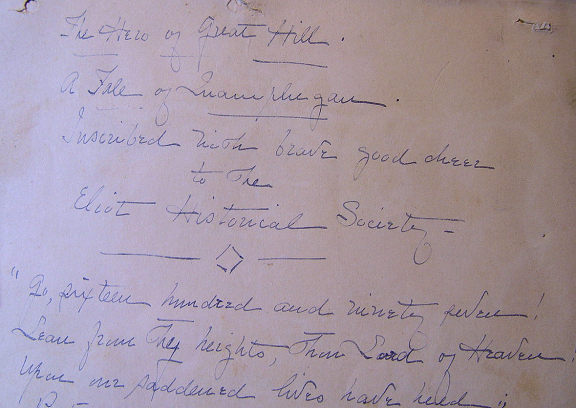 The Hero of Great Hill.
A Tale of Quamphegan.
Inscribed with brave good cheer
to The
Eliot Historical Society -
"Go, sixteen hundred and ninety seven!
Lean from Thy heights, Thou Lord of Heaven!
Upon our saddened lives have heed"